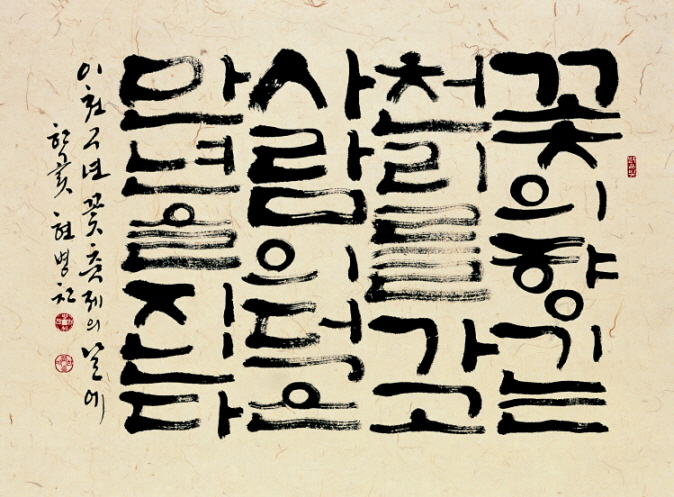 꽃의향기는
천리를가고
사람의덕은
만년을진다
이천구년 꽃축제의 날에
한곬 현병찬